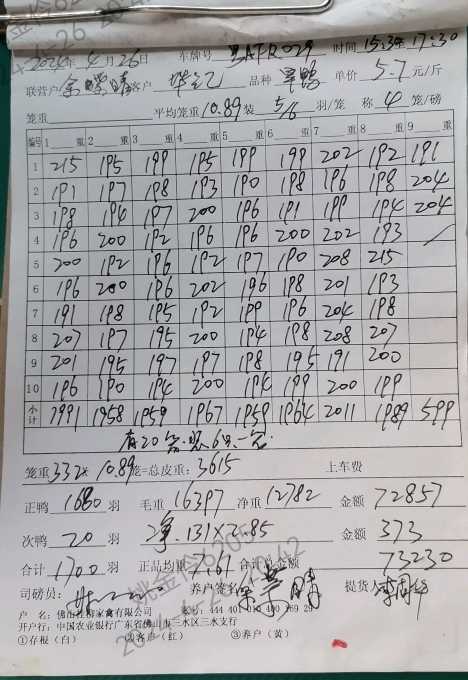 2024年4月26日 车牌号 时间 15:34 17:30
联营户 余 晴 客户 华记 品种 旱鸭 单价 5.7元/斤
笼重 平均笼重 10.89 装 5/6 羽/笼 称 4 笼/磅
编号 1 重 2 重 3 重 4 重 5 重 6 重 7 重 8 重 9 重
1 215 195 199 195 199 199 202 192 191
2 191 197 198 193 190 198 196 198 204
3 198 194 197 200 196 191 199 194 204
4 196 200 192 196 196 200 202 193
5 200 192 196 192 197 190 208 215
6 196 200 196 202 196 198 201 193
7 191 198 195 192 199 196 204 198
8 207 197 195 200 194 198 208 207
9 201 195 197 197 198 195 191 200
10 196 190 194 200 194 199 200 199
小计 1991 1958 1959 1967 1959 1964 2011 1989 599
有20笼
笼重 332x 10.89 笼=总皮重: 3615 上车费
正鸭 1680 羽 毛重 16397 净重 12782 金额 72857
次鸭 20 羽 净.131X2.85 金额 373
合计 1700 羽 正品均重 7.61 合计总金额 73230
司磅员: 养户签名 晴 提货人
户 名: 佛山 家禽有限公司
开户行: 中国农业银行广东省佛山市三水区三水支行
①存根(白) ②客户(红) ③养户(黄)